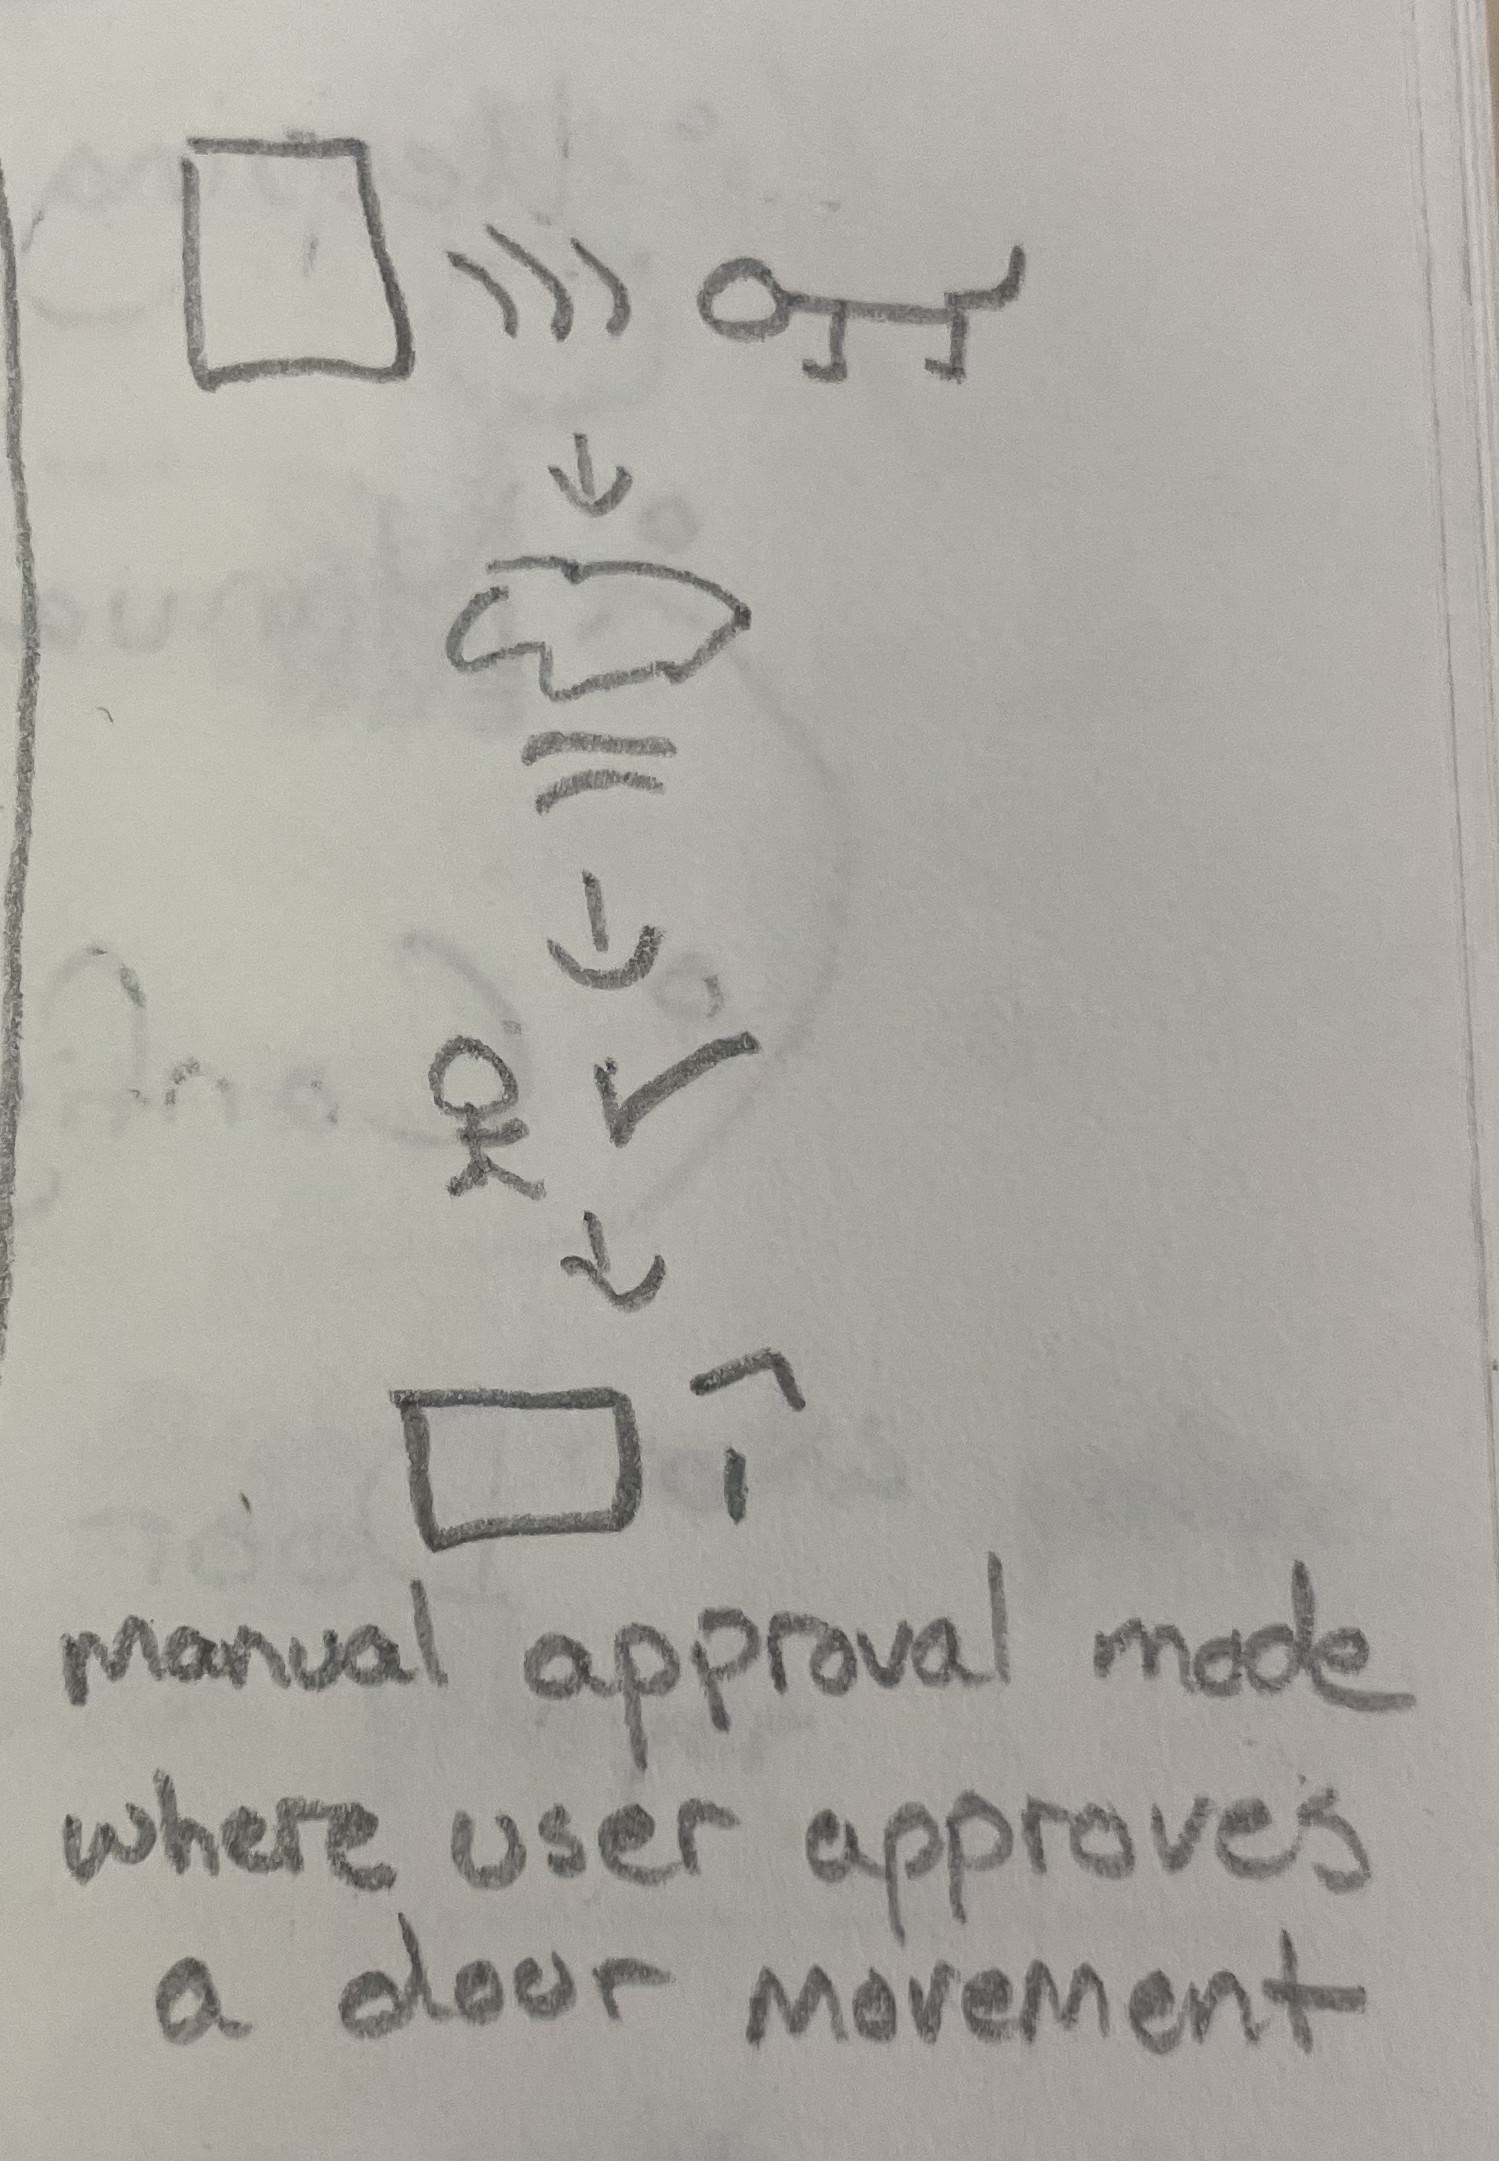 manual approval mode
where user approves
a door movement